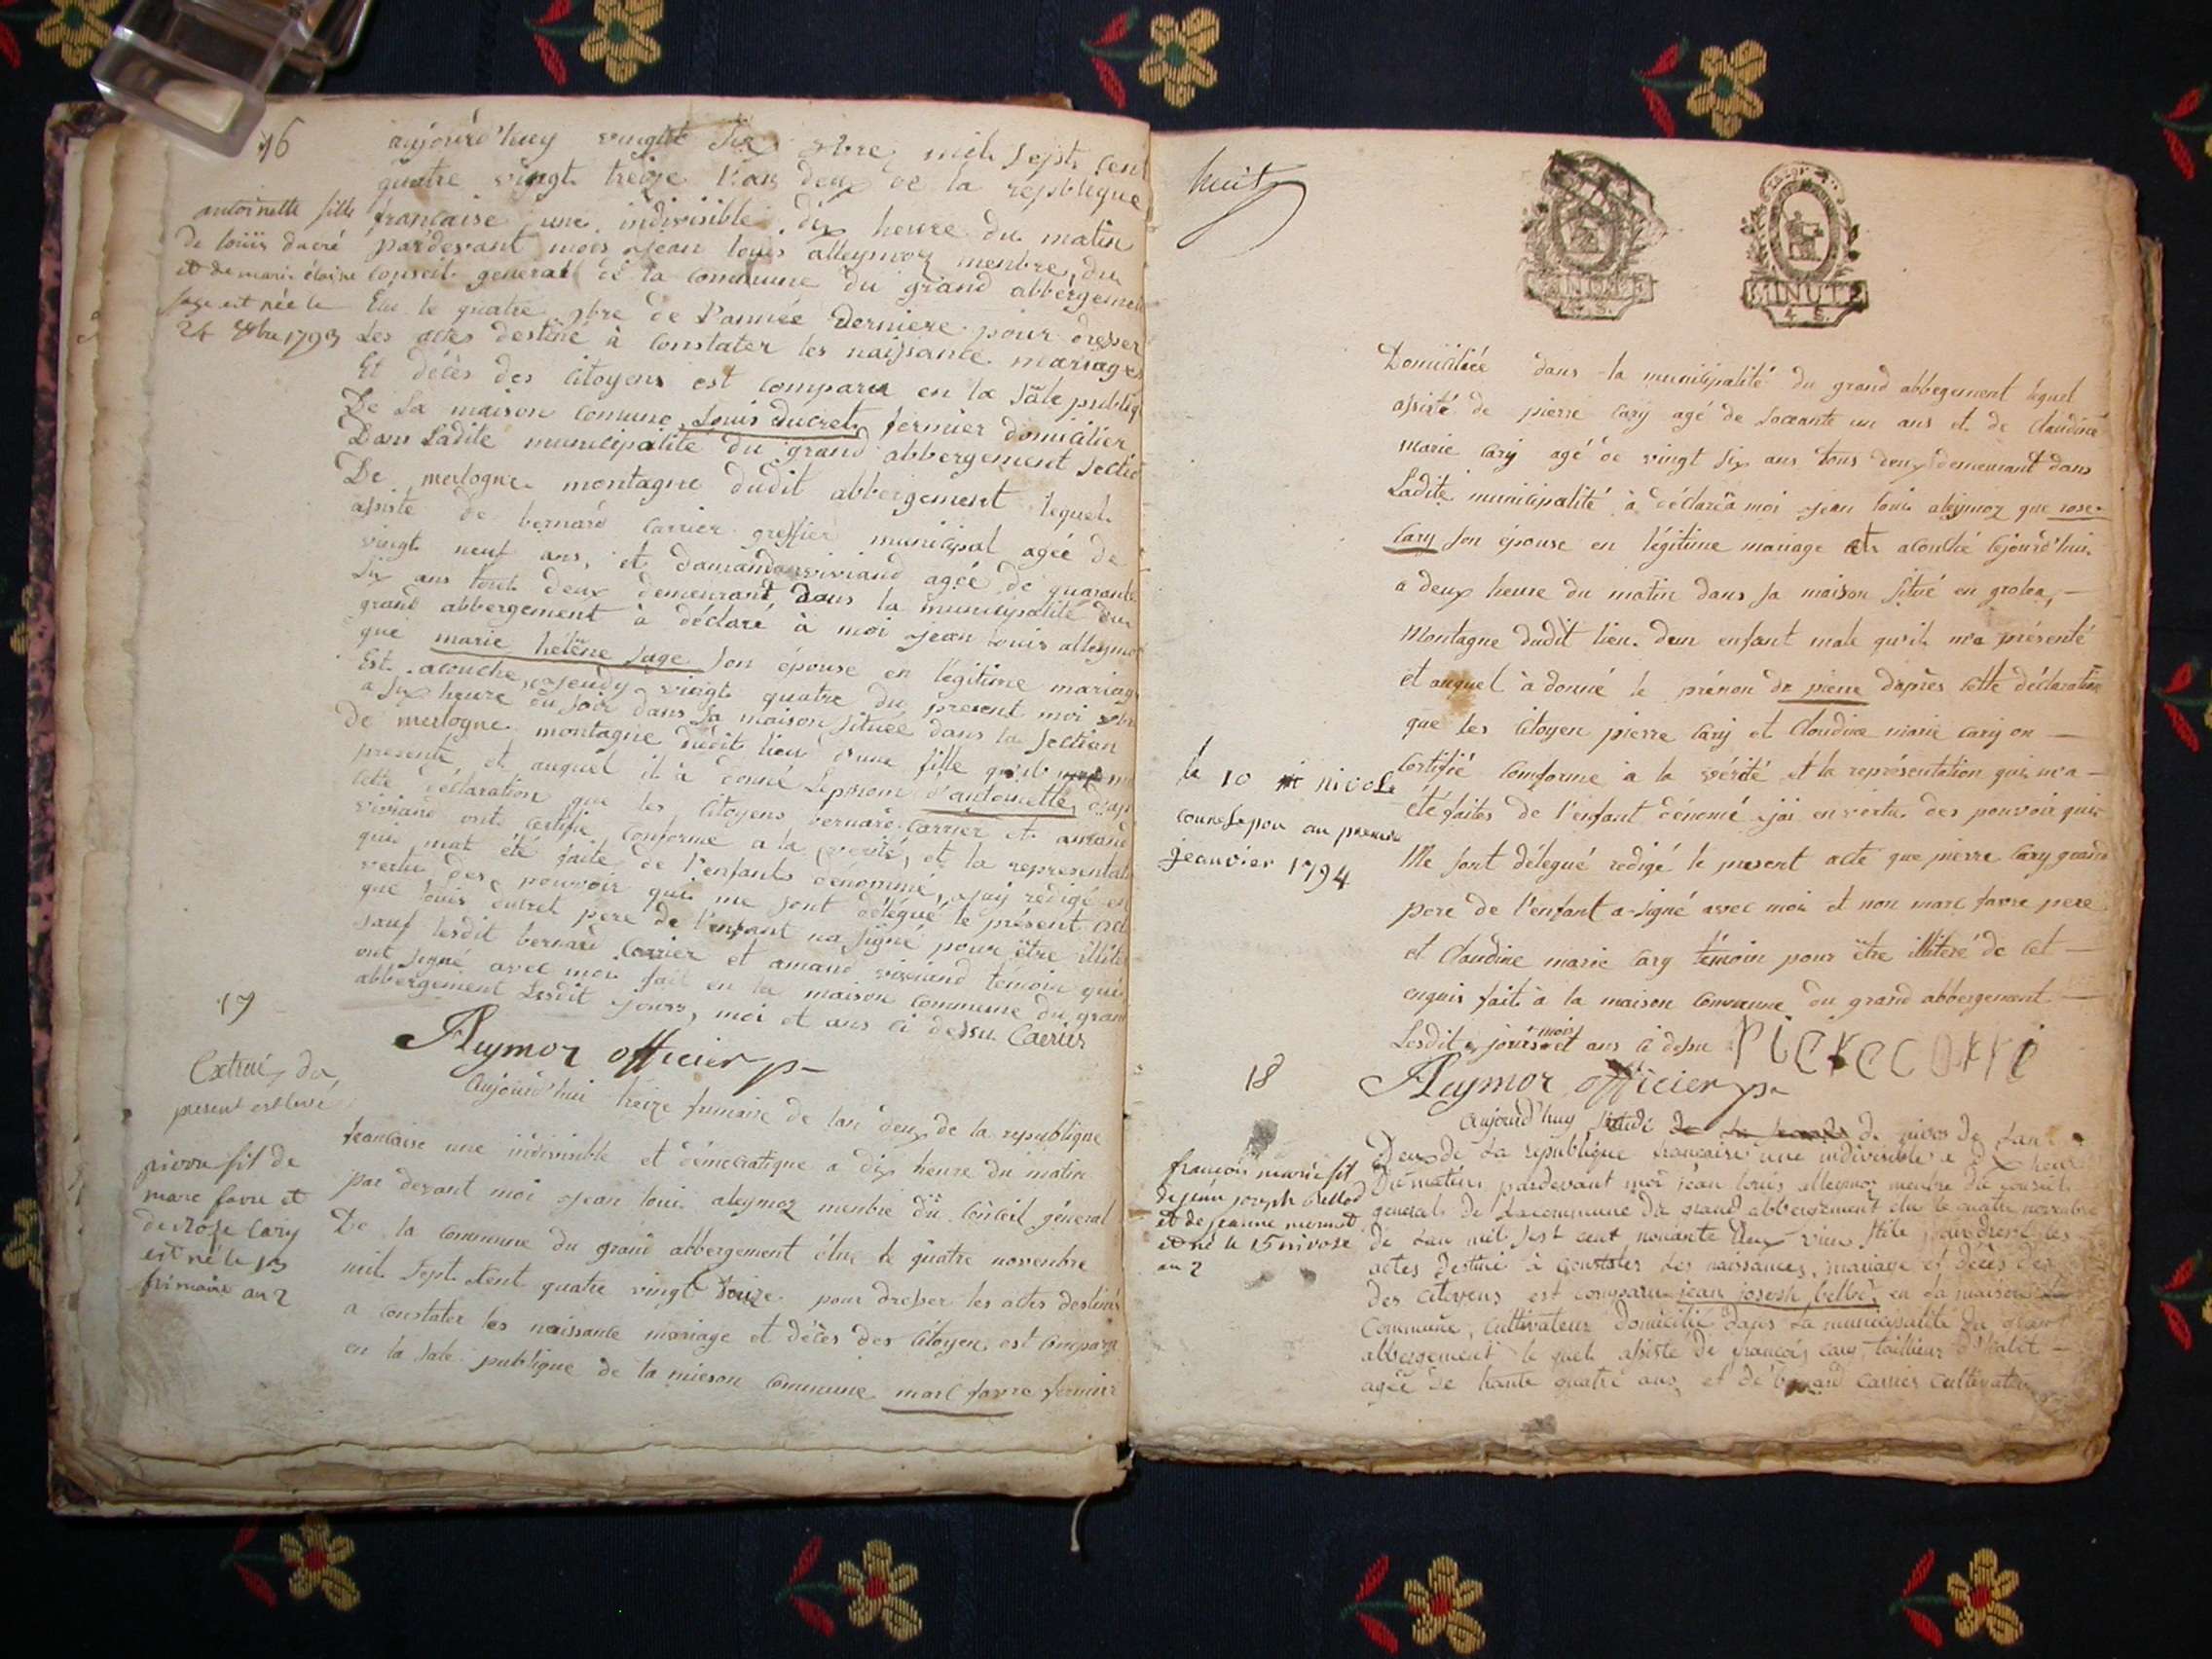 16
aujourd'huy vingt six 8bre mil sept cent
quatre vingt treize l'an deux de la republique
antoinette fille
de louis ducré
et de marie élaine
sage est née le
24 8bre 1793
francaise une indivisible dix heure du matin
pardevant mois jean louis alleymoz menbre du
conseil general de la commune du grand abbergement
Elu le quatre 9bre de l'année derniere pour dresser
Les actes destiné à constater les naissance mariage
Et décès des citoyens est comparu en la sale publiq
De La maison comune Louis ducret fermier domicilier
Dans Ladite municipalité du grand abbergement sectio
De merlogne montagne dudit abbergement lequel
assisté de bernard carrier greffier municipal agée de
vingt neuf ans, et damand viviand agée de quarante
six ans tout deux demeurant dans la municipalité du
grand abbergement à déclaré à moi jean louis alleymo
que marie hélène sage son épouse en légitime mariag
Est acouchée jeudy vingt quatre du present moi 8bre
a six heure du soir dans sa maison située dans la section
de merlogne montagne dudit lieu d'une fille qu'il
presente et auquel il à donné Leprnom d'antoinette d'ap
cette déclaration que les citoyens bernard carrier et amand
viviand ont certifie conforme a la verité, et la representat
qui mat été faite de l'enfants denommé, jay rédigé en
vertu des pouvoir qui me sont délégué le présent act
que louis ducret pere de l'enfant na signé pour être illité
sauf lesdit bernard carrier et amand viviand témoin qui
ont signé avec moi fait en la maison commune du gran
abbergement Lesdit jours, moi et ans ci dessu Carrier
Aleymoz officier p
17
Extrai du
present est levé
pierre fil de
marc favre et
de Roze Cary
est né le 13
frimaire an 2
aujourd'hui treize frimaire de lan deux de la republique
francaise une indivisible et démocratique a dix heure du matin
par devant moi jean loui aleymoz menbre du conceil général
De la commune du grand abbergement élue le quatre novenbre
mil sept cent quatre vingt douze pour dresser les actes destinés
a constater les naissance mariage et décès des citoyen est comparu
en la sale publique de la mieson commune marc favre fermier
huit
MINUTE
4 S.
MINUTE
4 S.
Domiciliée dans la municipalité du grand abbegement lequel
assisté de pierre cary agé de soixante un ans et de claudine
marie cary agé de vingt six ans tous deux demeurant dans
Ladite municipalité à déclaré a moi jean loui aleymoz que rose
Cary son épouse en légitime mariage et acouché cejourd'hui
a deux heure du matin dans sa maison situé en grolea,
montagne dudit lieu dun enfant male qu'il ma présenté
et auquel à donné le prénon de pierre d'après cette déclaration
que les citoyen pierre cary et Claudine marie cary on
certifié comforme a la vérité et la représentation qui m'a
été faites de l'enfant dénomé jai en vertu des pouvoir qui
Me sont délegué redigé le present acte que pierre Cary grand
pere de l'enfant a signé avec moi et non marc favre pere
et Claudine marie Cary témoin pour être illiteré de cet
enquis fait à la maison Commune du grand abbergement
Lesdit jours mois et ans ci dessu
le 10 nivose
correspon au premier
jeanvier 1794
Aleymoz officier p
18
françois marie fil
de jean joseph Bellod
et de jeanne mermet
et né le 15 nivose
an 2
aujourd'huy de nivos de Lant
Deux de La republique francaise une indivisible a dix heur
Du matin, pardevant moi jean louis alleymoz menbre du conseil
general De La commune du grand abbergement élu le quatre novenbre
de Lan mil sest cent nonante deux vieu stile pour dressé les
actes Destiné à Constater Les naissances, mariage et décès des
des Citoyens est comparu jean joseph bellod en La maison
Commune, Cultivateur domicilié dans La municipalité du grand
abbergement le quel assisté de françois cary taillieur d'habit
agée de trante quatre ans et de bernard Carrier cultivateur